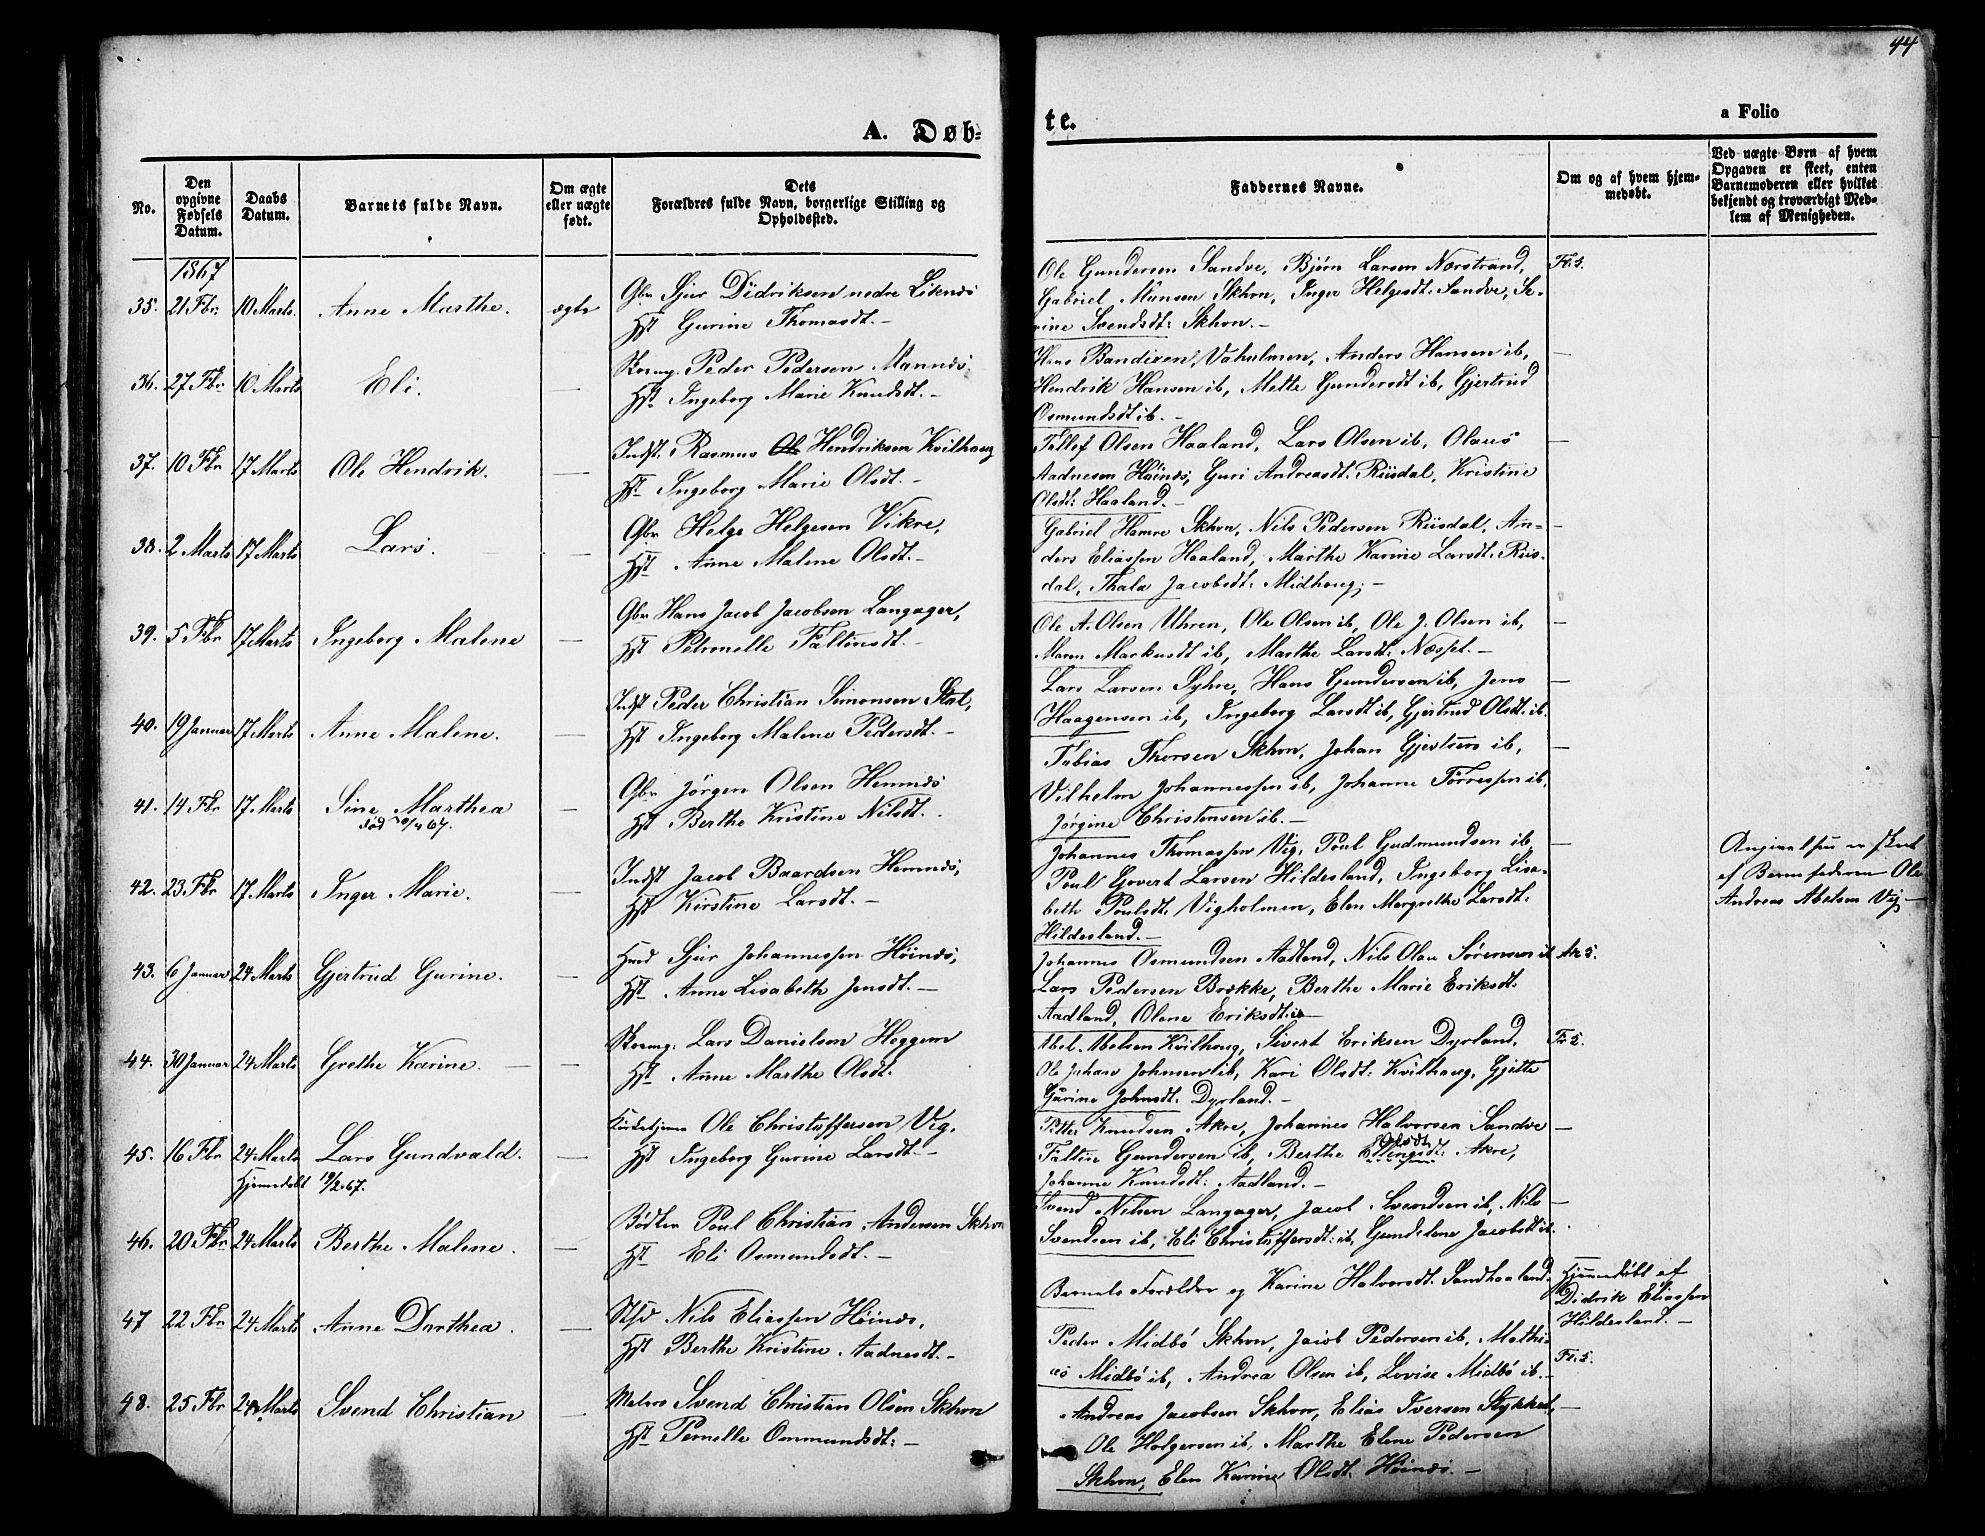 44
A. Døb-
te.
a Folio
No.
Den opgivne Fødsels Datum.
Daabs Datum.
Barnets fulde Navn.
Om ægte eller uægte født.
Dets Forældres fulde Navn, borgerlige Stilling og Opholdssted.
Faddernes Navne.
Om og af hvem hjemmedøbt.
Ved uægte Børn af hvem Opgaven er skeet, enten Barnemoderen eller hvilket bekjendt og troværdigt Medlem af Menigheden.
1867
35. 21 Fbr. 10 Marts. Anne Marthe. ægte
Gbr Sjur Didriksen nedre Liknes
Hst Gurine Thomasdt. –
Ole Gundersen Sandve, Bjørn Larsen Norstrand,
Gabriel Monsen Skhvn, Inger Helgesdt. Sandve, Se-
rine Svendsdt: Skhvn. –
36. 27 Fbr. 10 Marts Eli. —
Peder Pedersen Mannes.
Hst. Ingeborg Marie Knudsdt. –
Vaholmen, Anders Hansen ib,
Hendrik Hansen ib, Mette Gundersdt ib, Gjertrud
Osmundsdt ib. –
37. 10 Fbr 17 Marts Ole Hendrik. —
Indst. Rasmus Ole Hendriksen Kvilhaug
Hst Ingeborg Marie Olsdt. –
Tollef Olsen Haaland, Lars Olsen ib, Olaus
Aadnesen Høines, Guri Andreasdt: Risdal, Kristine
Olsdt: Haaland. –
38. 2 Marts 17 Marts Lars. —
Gbr Helge Helgesen Vikre,
Hst Anne Malene Olsdt. –
Gabriel Hamre Skhvn, Nils Pedersen Risdal, An-
ders Eliassen Haaland, Marthe Karine Larsdt: Ris-
dal, Thala Jacobsdt: Midhoug; –
39. 5 Fbr 17 Marts Ingeborg Malene —
Gbr Hans Jacob Jacobsen Langager,
Hst Petronelle Faltinsdt. –
Ole A. Olsen Uhren, Ole Olsen ib, Ole J. Olsen ib,
Maren Markusdt ib, Marthe Larsdt: Næsset. –
40. 19 Januar 17 Marts Anne Malene. —
Indst Peder Christian Simonsen Stol,
Hst Ingeborg Malene Pedersdt. –
Lars Larsen Syhre, Hans Gundersen ib, Jens
Haagensen ib, Ingeborg Larsdt ib, Gjertrud Olsdt. ib.
41. 14 Fbr 17 Marts Sine Marthea —
Gbr Jørgen Olsen Hemnes
Hst Berthe Kristine Nilsdt.
Tobias Thorsen Skhvn, Johan Gjertsen ib,
Vilhelm Johannessen ib, Johanne Tørressen ib,
Jørgine Christensen ib. –
42. 23 Fbr 17 Marts Inger Marie. —
Indst Jacob Baardsen Hemnes,
Hst Kirstine Larsdt. –
Johannes Thomassen Vig, Poul Gudmundsen ib,
Poul Govert Larsen Hildesland, Ingeborg Lisa-
beth Poulsdt. Vigholmen, Elen Margrethe Larsdt:
Hildesland. –
Angivelsen er skeet
af Barnefaderen Ole
Andreas Abelsen Vig –
43. 6 Januar 24 Marts Gjertrud Gurine. —
Sjur Johannessen Høines,
Hst Anne Lisabeth Jensdt. –
Johannes Osmundsen Aadland, Nils Olau Sørensen ib
Lars Pedersen Brække, Berthe Marie Eriksdt.
Aadland, Olene Eriksdt. ib
44. 30 Januar 24 Marts Grethe Karine. —
Lars Danielsen Heggem
Hst Anne Marthe Olsdt.
Abel Abelsen Kvilhoug, Sivert Eriksen Dyrland,
Ole Johan Johnsen ib, Kari Olsdt: Kvilhaug, Gjitte
Gurine Johnsdt. Dyrland. –
45. 16 Fbr 24 Marts Lars Gundvald. —
Hjemmedøbt 19/2 67.
Kirketjener Ole Christoffersen Vig.
Hst Ingeborg Gurine Larsdt. –
Petter Knudsen Akre, Johannes Halvorsen Sandve
Faltin Gundersen ib, Berthe Olsdt. Akre,
Johanne Knudsdt: Aadland. –
46. 20 Fbr 24 Marts Berthe Malene. —
Bødker Poul Christian Andersen Skhvn
Hst Eli Osmundsdt. –
Svend Nilsen Langager, Jacob Svendsen ib, Nils
Svendsen ib, Eli Christoffersdt: ib, Gundelene Jacobsdt ib
47 22 Fbr 24 Marts Anne Dorthea. —
Nils Eliassen Høines,
Hst Berthe Kristine Aadnesdt. –
Barnets Forældre og Karine Halvorsdt. Sandhaaland.
Hjemmedøbt af
Didrik Eliassen
Hildesland. –
Peder Midbø Skhvn, Jacob Pedersen ib, Mathi-
as Midbø ib, Andrea Olsen ib, Lovise Midbø ib. –
48. 25 Fbr 24 Marts Svend Christian —
Svend Christian Olsen Skhvn
Hst Pernelle Ommundsdt: –
Andreas Jacobsen Skhvn, Elias Iversen Stykket,
Ole Holgersen ib, Marthe Elene Pedersen
Skhvn, Elen Karine Olsdt. Høines. –